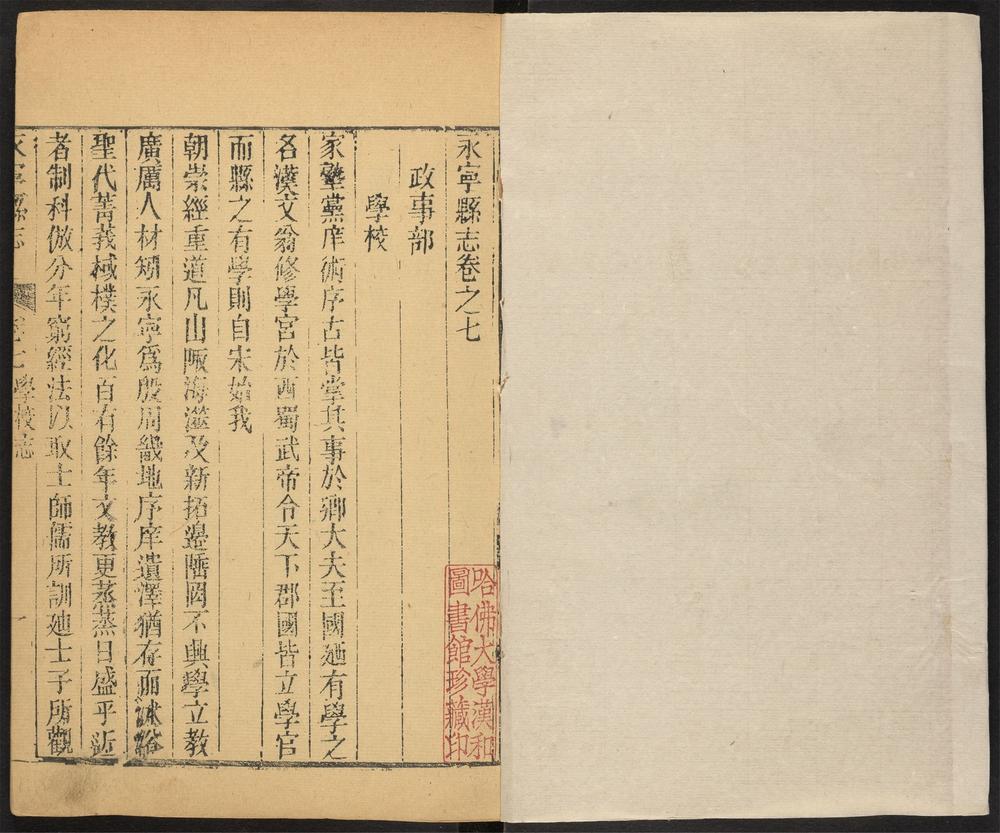 永寧縣志卷之七
政事部
學校
家塾黨庠術序古皆掌其事於卿大夫至國廼有學之
名漢文翁修學宮於西蜀武帝令天下郡國皆立學官
而縣之有學則自宋始我
朝崇經重道凡山陬海澨及新拓邊陲罔不興學立教
廣厲人材矧永寧爲殷周畿地序庠遺澤猶存而沭浴
聖代菁莪棫樸之化百有餘年文教更蒸蒸日盛乎近
者制科倣分年窮經法以取士師儒所訓廸士子所觀
永寧縣志 卷七 學校志 一
哈佛大學漢和
圖書館珍藏印